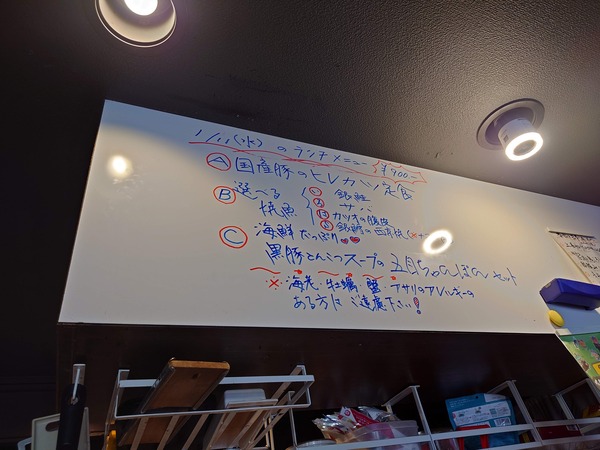 1/11(水) のランチメニュー ¥900-
Ⓐ 国産豚のヒレカツ定食
Ⓑ 選べる焼魚
銀鮭
サバ
カツオの腹皮
銀鱈の西京焼
Ⓒ 海鮮たっぷり♥♥
黒豚とんこつスープの五目ちゃんぽんセット
※海老・牡蠣・蟹・アサリのアレルギーの
ある方はご遠慮下さい!